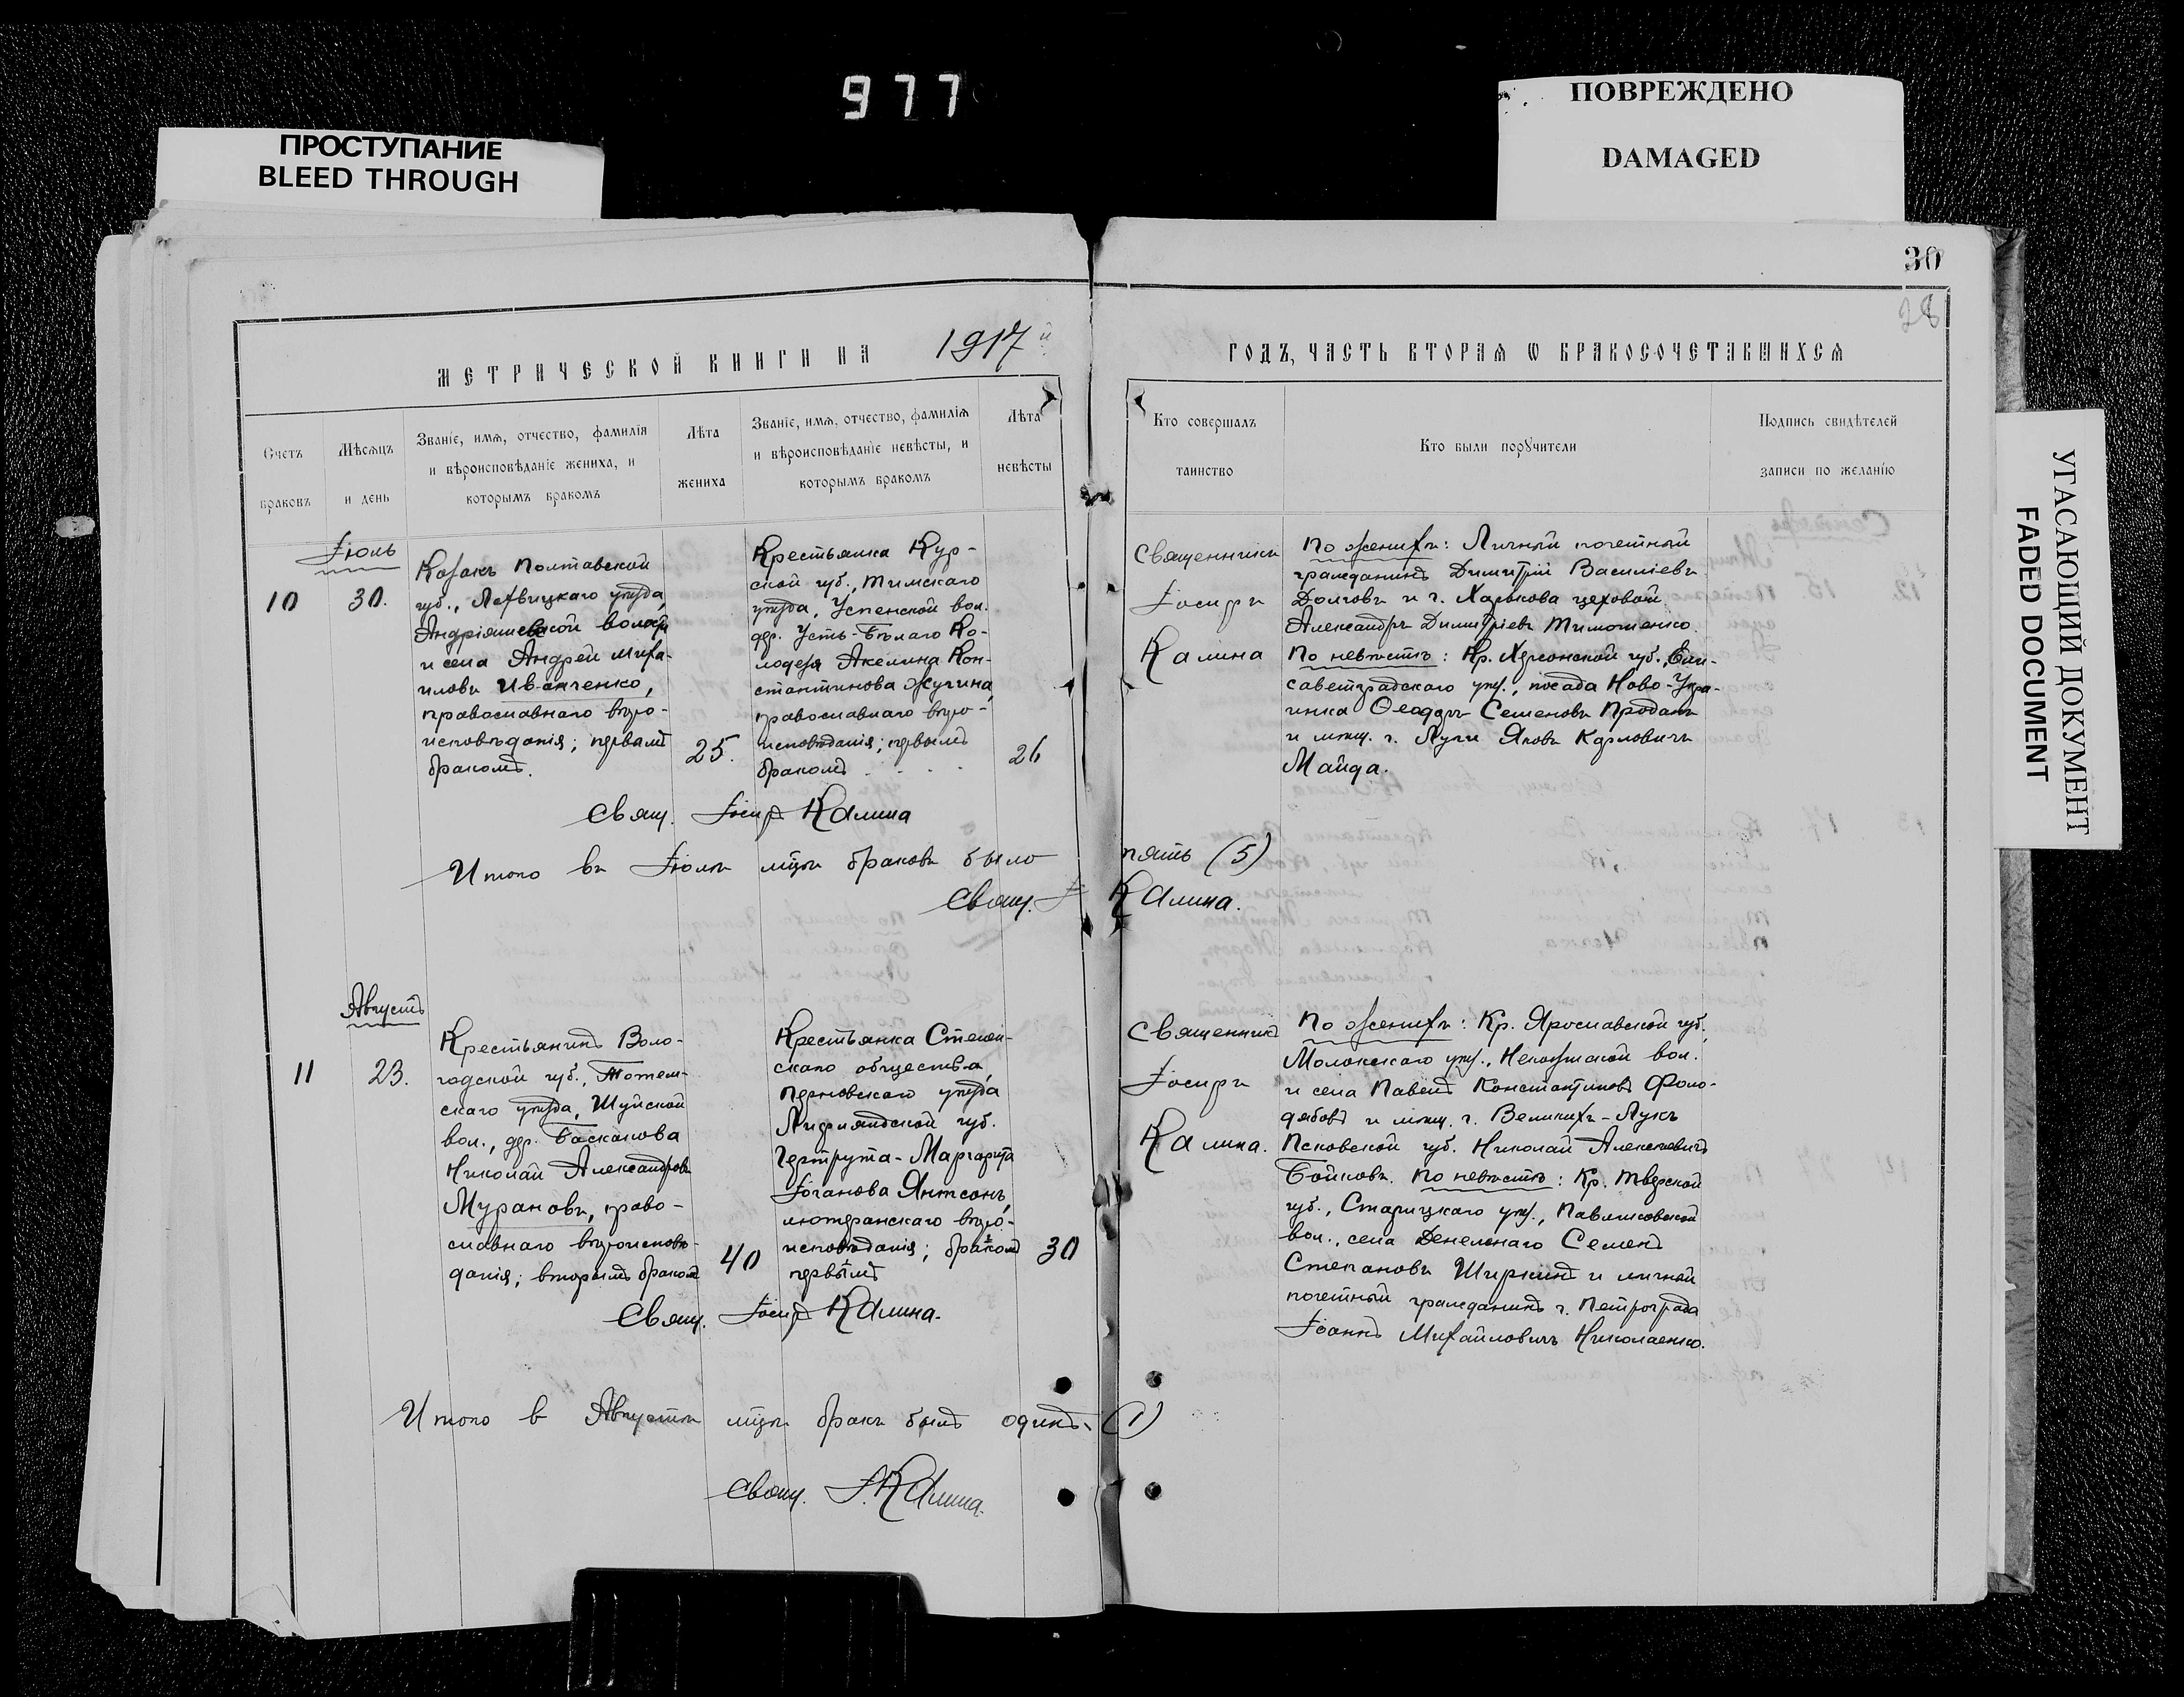 977
ПРОСТУПАНИЕ
BLEED THROUGH
ПОВРЕЖДЕНО
DAMAGED
УГАСАЮЩИЙ ДОКУМЕНТ
FADED DOCUMENT
30
28
МЕТРИЧЕСКОЙ КНИГИ НА 1917й
ГОДЪ, ЧАСТЬ ВТОРАѦ Ѡ БРАКОСОЧЕТАВШИХСѦ
Счетъ
браковъ
Мѣсѧцъ
и день
Званіе, имѧ, отчество, фамиліѧ
и вѣроисповѣданіе жениха, и
которымъ бракомъ
Лѣта
жениха
Званіе, имѧ, отчество, фамиліѧ
и вѣроисповѣданіе невѣсты, и
которымъ бракомъ
Лѣта
невѣсты
Кто совершалъ
таинство
Кто были порꙋчители
Подпись свидѣтелей
записи по желанію
Іюль
10
30.
Козакъ Полтавской
губ., Лохвицкаго уѣзда,
Андріяшевской волости
и села Андрей Миха-
иловъ Иванченко,
православнаго вѣро-
исповѣданія; первымъ
бракомъ.
25.
Крестьянка Кур-
ской губ., Тимскаго
уѣзда, Успенской вол.
дер. Усть-Бѣлаго Ко-
лодезя Акелина Кон-
стантинова Жучина,
православнаго вѣро-
исповѣданія; первымъ
бракомъ
26
Священникъ
Іосифъ
Калина
По женихѣ: Личный почетный
гражданинъ Димитрій Васильевъ
Долговъ и г. Харькова цеховой
Александръ Димитріевъ Тимошенко.
По невѣстѣ: Кр. Херсонской губ., Ели-
саветградскаго уѣз., посада Ново-Укра-
инка Ѳеодоръ Семеновъ Проданъ
и мѣщ. г. Луги Яковъ Карловичъ
Майда.
Свящ. Іосиф Калина
Итого въ Іюлѣ мѣцѣ браковъ было пять (5)
Свящ. І Калина.
Августъ
11
23.
Крестьянинъ Воло-
годской губ., Тотем-
скаго уѣзда, Шуйской
вол., дер. Басканова
Николай Александровъ
Мурановъ, право-
славнаго вѣроисповѣ-
данія; вторымъ бракомъ
40
Крестьянка
скаго общества,
Перновскаго уѣзда
Лифляндской губ.
Гертрута-Маргарита
Іоганова Янтсонъ,
лютеранскаго вѣро-
исповѣданія; бракомъ
первымъ
30
Священникъ
Іосифъ
Калина.
По женихѣ: Кр. Ярославской губ.,
Моложскаго уѣз., вол.
и села Павелъ Константиновъ
и мѣщ. г. Великихъ-Лукъ
Псковской губ. Николай Алексѣевичъ
Бойковъ. По невѣстѣ: Кр. Тверской
губ., Старицкаго уѣз., Павликовской
вол., села Денежнаго Семенъ
Степановъ Ширкинъ и личный
почетный гражданинъ г. Петрограда
Іоаннъ Михайловичъ Николаенко.
Свящ. Іосиф Калина.
Итого в Августѣ мѣцѣ бракъ былъ одинъ. (1)
Свящ. І. Калина.